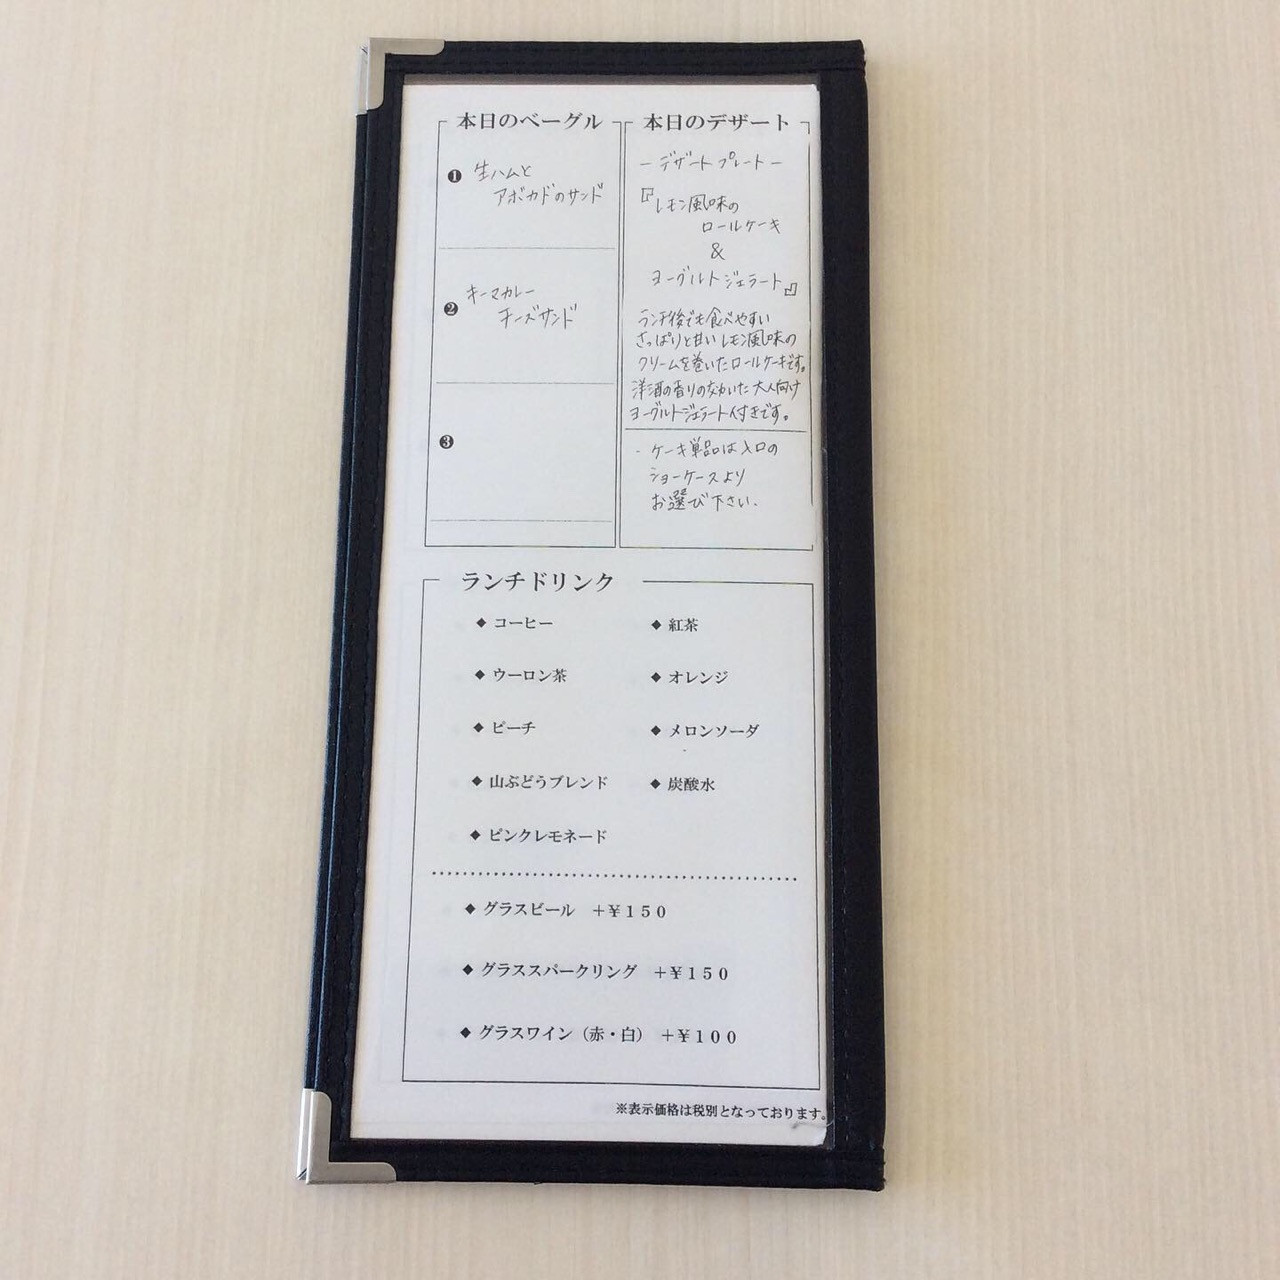 本日のベーグル
❶ 生ハムと
アボカドのサンド
❷ キーマカレー
チーズサンド
❸
本日のデザート
－デザートプレート－
『レモン風味の
ロールケーキ
&
ヨーグルトジェラート』
ランチ後でも食べやすい
さっぱりと甘いレモン風味の
クリームを巻いたロールケーキです。
洋酒の香りの効いた大人向け
ヨーグルトジェラート付きです。
・ケーキ単品は入口の
ショーケースより
お選び下さい.
ランチドリンク
◆ コーヒー ◆ 紅茶
◆ ウーロン茶 ◆ オレンジ
◆ ピーチ ◆ メロンソーダ
◆ 山ぶどうブレンド ◆ 炭酸水
◆ ピンクレモネード
◆ グラスビール ＋￥１５０
◆ グラススパークリング ＋￥１５０
◆ グラスワイン（赤・白） ＋￥１００
※表示価格は税別となっております。